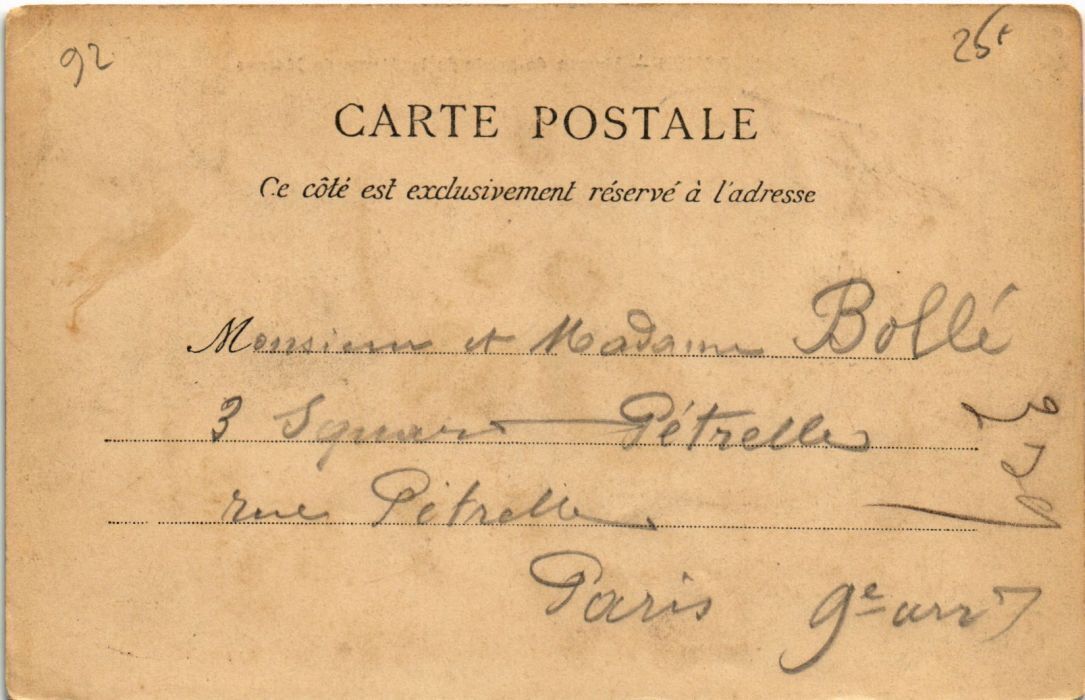 92
25
CARTE POSTALE
Ce côté est exclusivement réservé à l'adresse
Monsieur et Madame Bollé
3 Square Pétrelle
rue Pétrelle
Paris 9e arrt